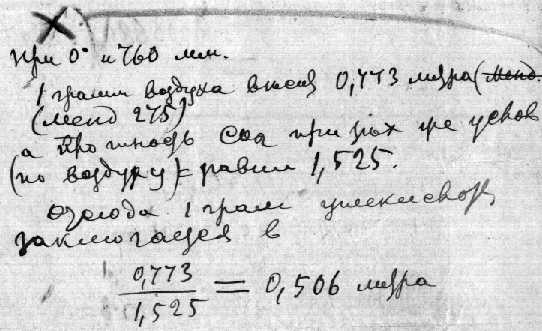 при 0° и 760 мм.
1 грамм воздуха вмещ 0,773 литра (Менд.
(Менд 275)
а плотность CO2 при тех же услов
(по воздуху) = равн 1,525.
Отсюда 1 грам углекислоты
заключается в
0,773
1,525 = 0,506 литра